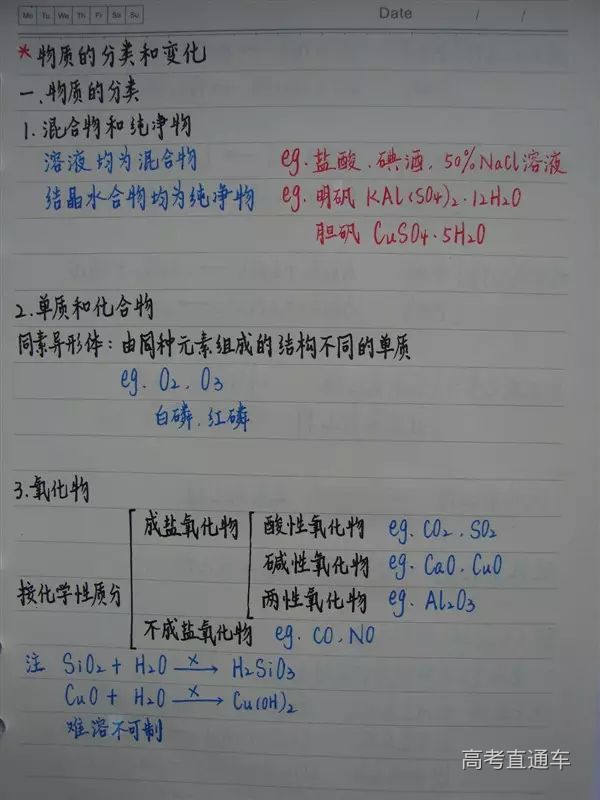 Mo Tu We Th Fr Sa Su
Date / /
*物质的分类和变化
一、物质的分类
1.混合物和纯净物
溶液均为混合物 eg.盐酸、碘酒、50%NaCl溶液
结晶水合物均为纯净物 eg.明矾 KAl(SO4)2·12H2O
胆矾 CuSO4·5H2O
2.单质和化合物
同素异形体:由同种元素组成的结构不同的单质
eg. O2、O3
白磷、红磷
3.氧化物
成盐氧化物 酸性氧化物 eg. CO2、SO2
碱性氧化物 eg. CaO、CuO
按化学性质分 两性氧化物 eg. Al2O3
不成盐氧化物 eg. CO、NO
注 SiO2 + H2O —x→ H2SiO3
CuO + H2O —x→ Cu(OH)2
难溶不可制
高考直通车